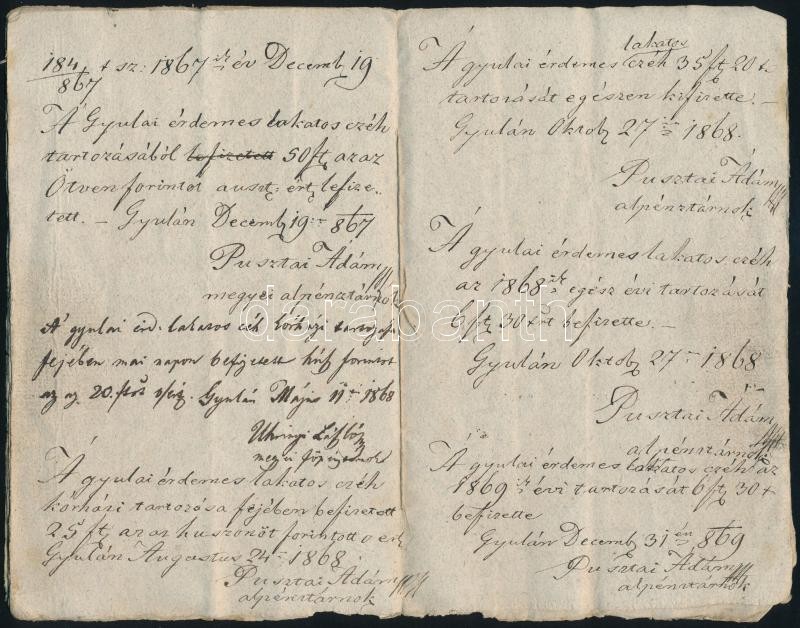 184/867 + sz: 1867 ik év Decemb 19
A Gyulai érdemes lakatos czéh
tartozásából befizetett 50 ft azaz
Ötven forintot auszt: ért lefize-
tett. – Gyulán Decemb 19 867
Pusztai Ádám
megyei alpénztárnok
A gyulai érd. lakatos céh kórházi tartozása
fejében mai napon befizetett húsz forintot
az az 20. ft
Gyulán Május 11 1868
Uhrinyi László
megyei főpénztárnok
A gyulai érdemes lakatos czéh
kórházi tartozása fejében befizetett
25 ft azaz huszonöt forintot o ért
Gyulán Augustus 24 1868
Pusztai Ádám
alpénztárnok
lakatos
A gyulai érdemes czéh 35 ft 20 +
tartozását egészen kifizette. –
Gyulán Oktob 27 1868.
Pusztai Ádám
alpénztárnok
A gyulai érdemes lakatos czéh
az 1868 ik egész évi tartozását
6 ft 30 +rt befizette. –
Gyulán Oktob 27 1868
Pusztai Ádám
alpénztárnok
A gyulai érdemes lakatos czéh az
1869 ik évi tartozását 6 ft 30 +
befizette
Gyulán Decemb 31 én 869
Pusztai Ádám
alpénztárnok
darabanth